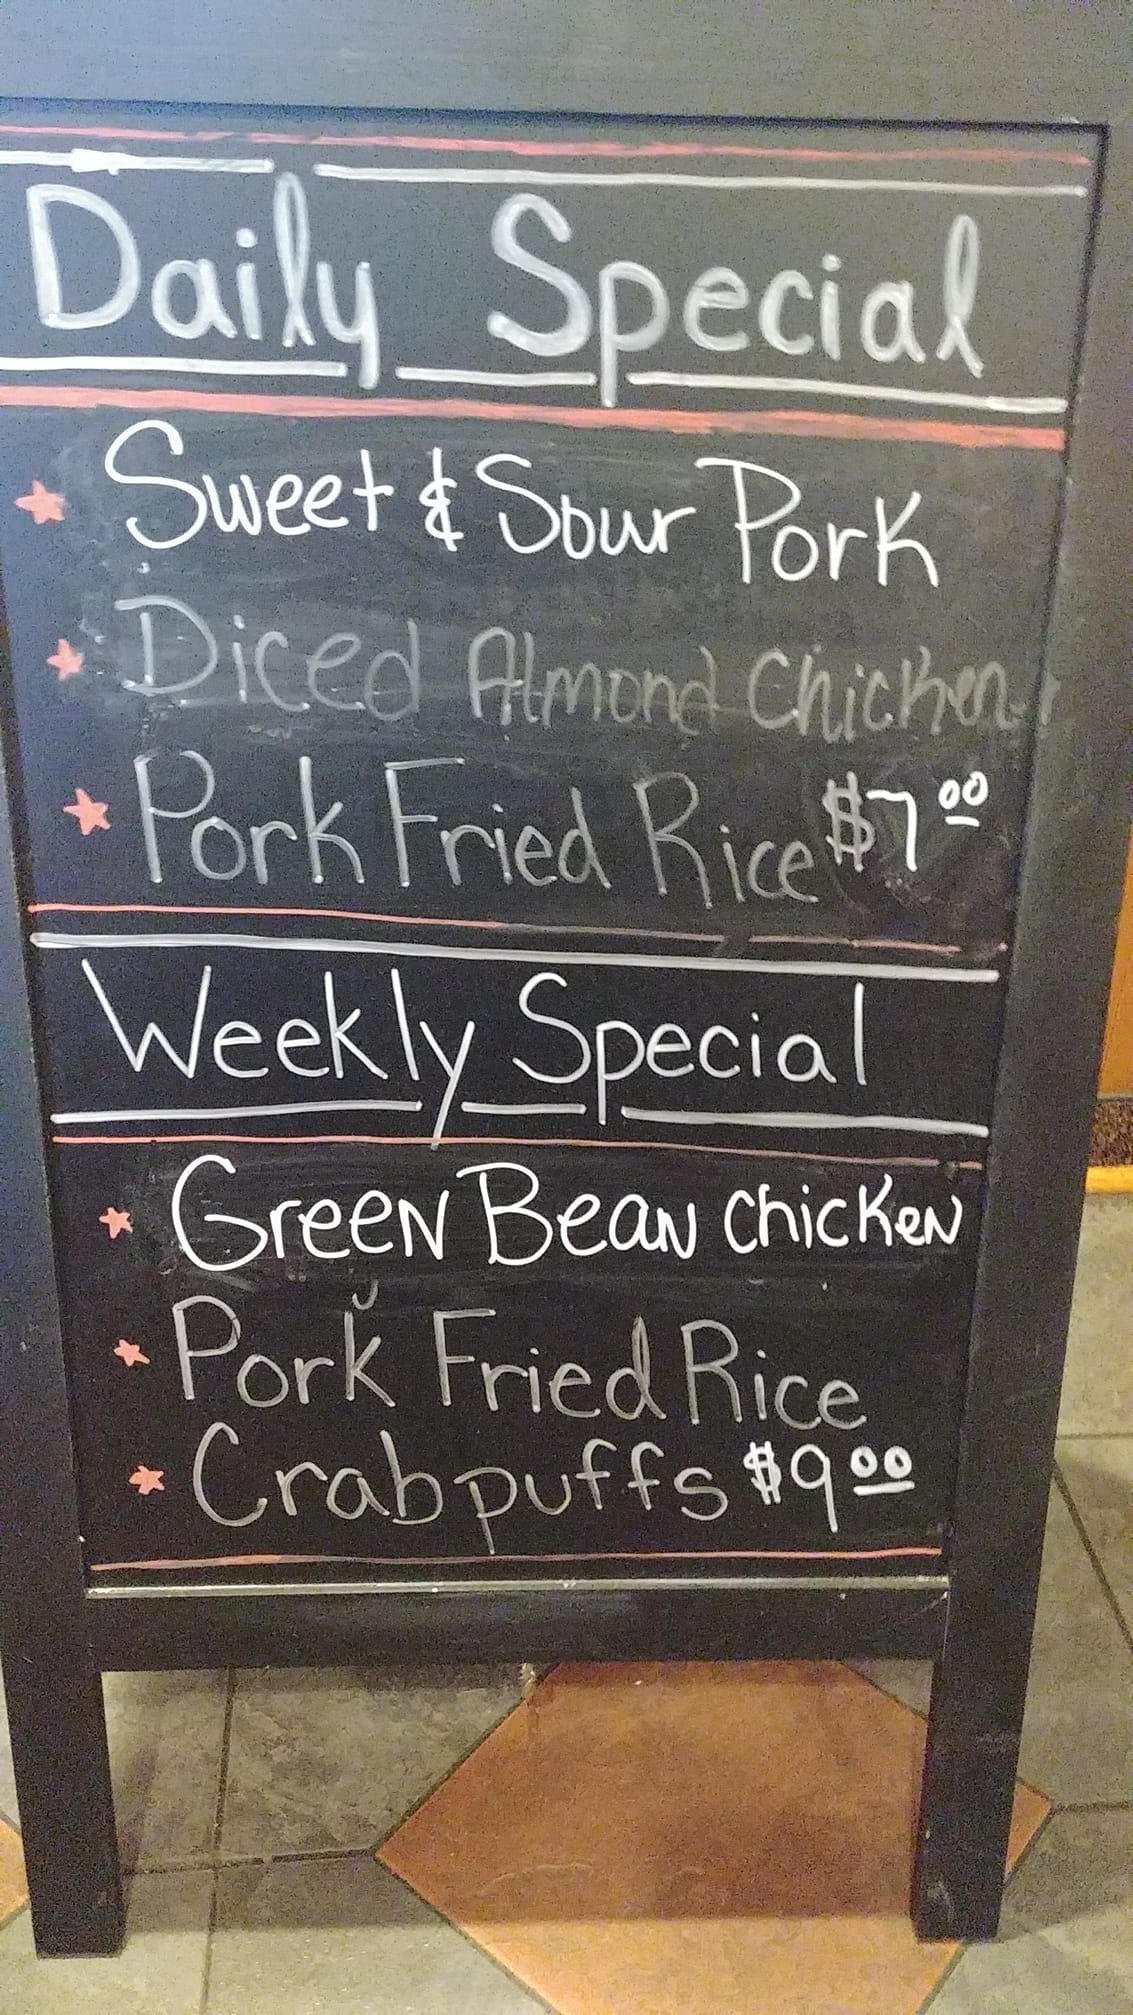 Daily Special
Sweet & Sour Pork
Diced Almond Chicken
Pork Fried Rice $7.00
Weekly Special
Green Bean Chicken
Pork Fried Rice
Crab puffs $9.00